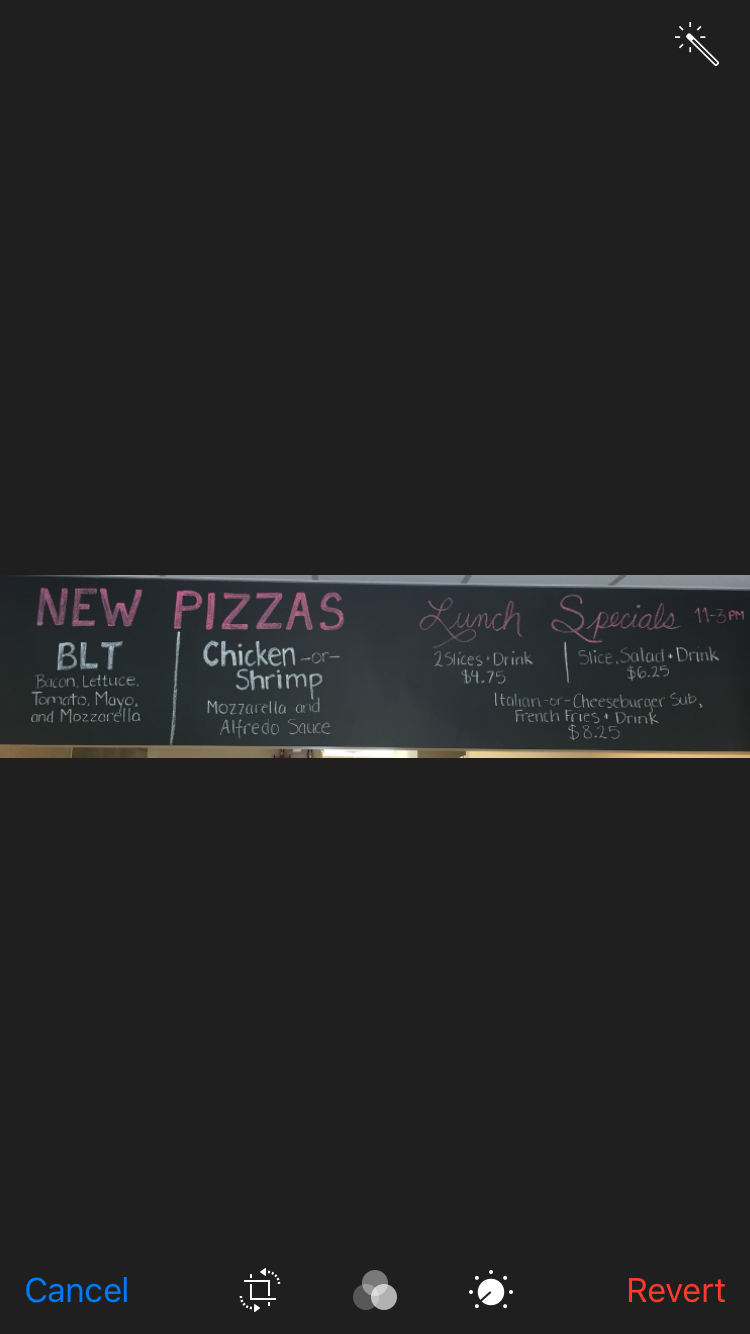 NEW PIZZAS
BLT
Bacon, Lettuce,
Tomato, Mayo,
and Mozzarella
Chicken -or-
Shrimp
Mozzarella and
Alfredo Sauce
Lunch Specials 11-3PM
2 Slices + Drink
$4.75
Slice, Salad + Drink
$6.25
Italian -or- Cheeseburger Sub,
French Fries + Drink
$8.25
Cancel
Revert